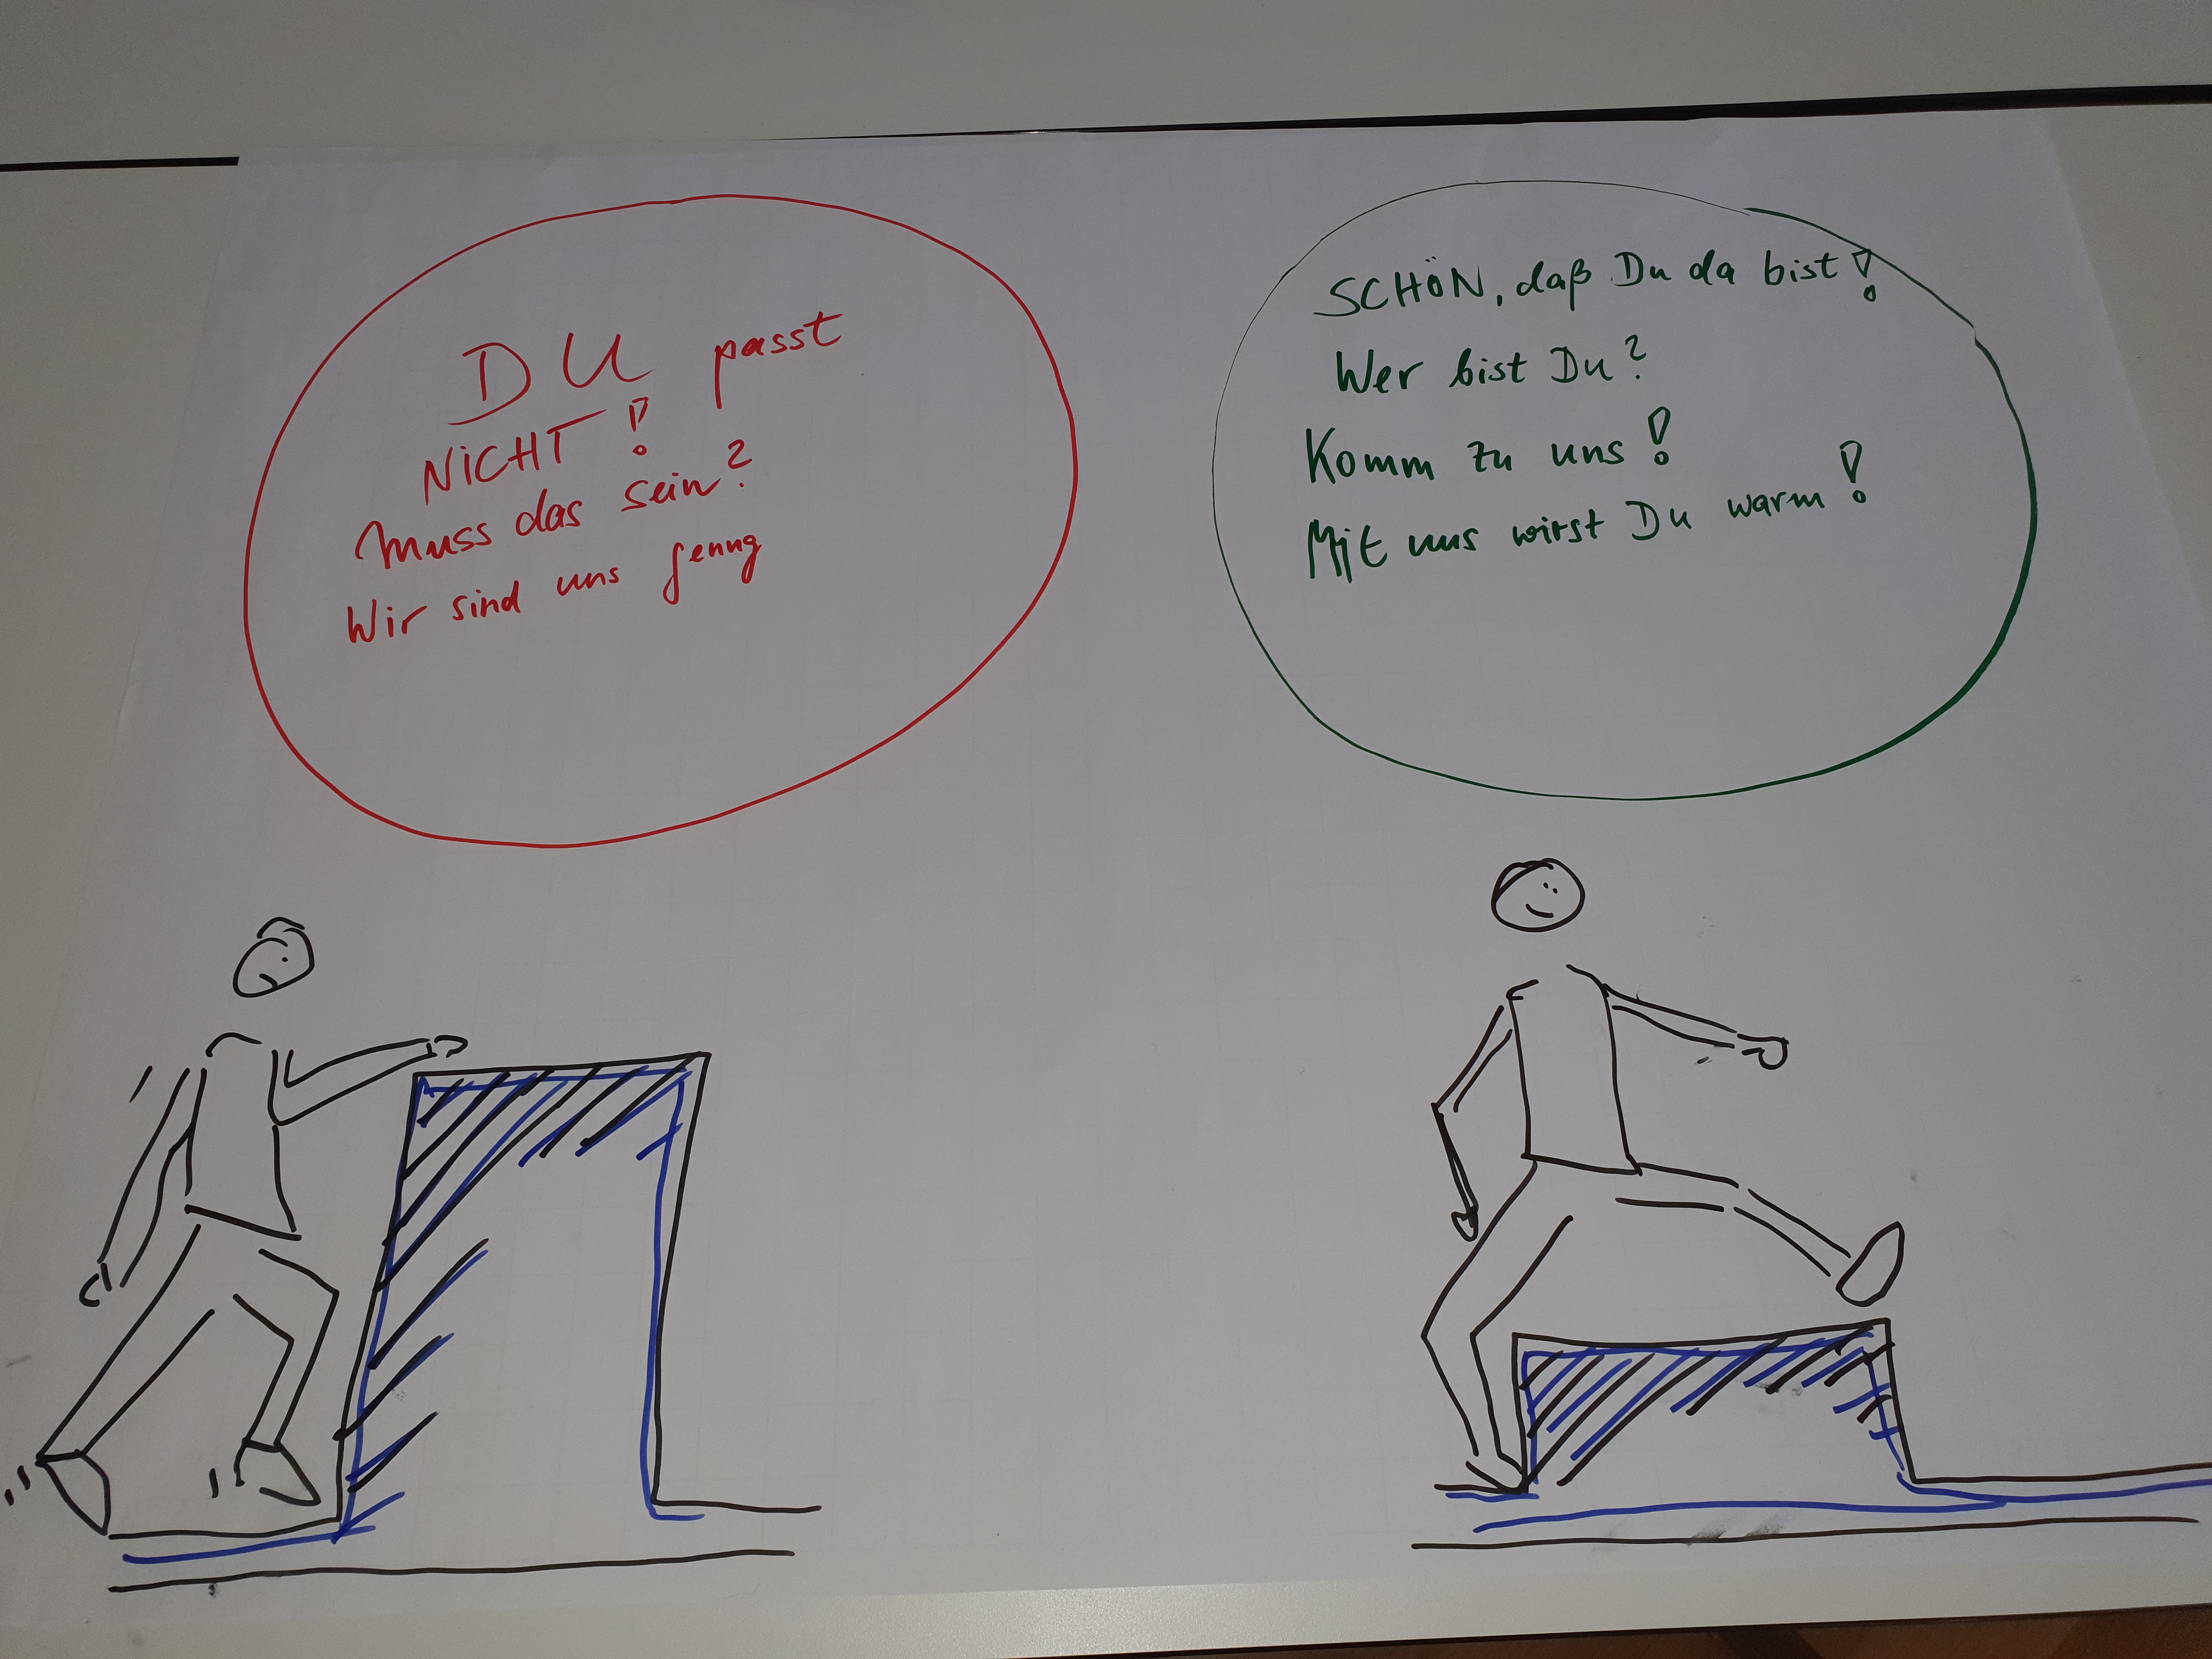 DU passt
NICHT!
Muss das sein?
Wir sind uns genug
SCHÖN, daß Du da bist!
Wer bist Du?
Komm zu uns!
Mit uns wirst Du warm!